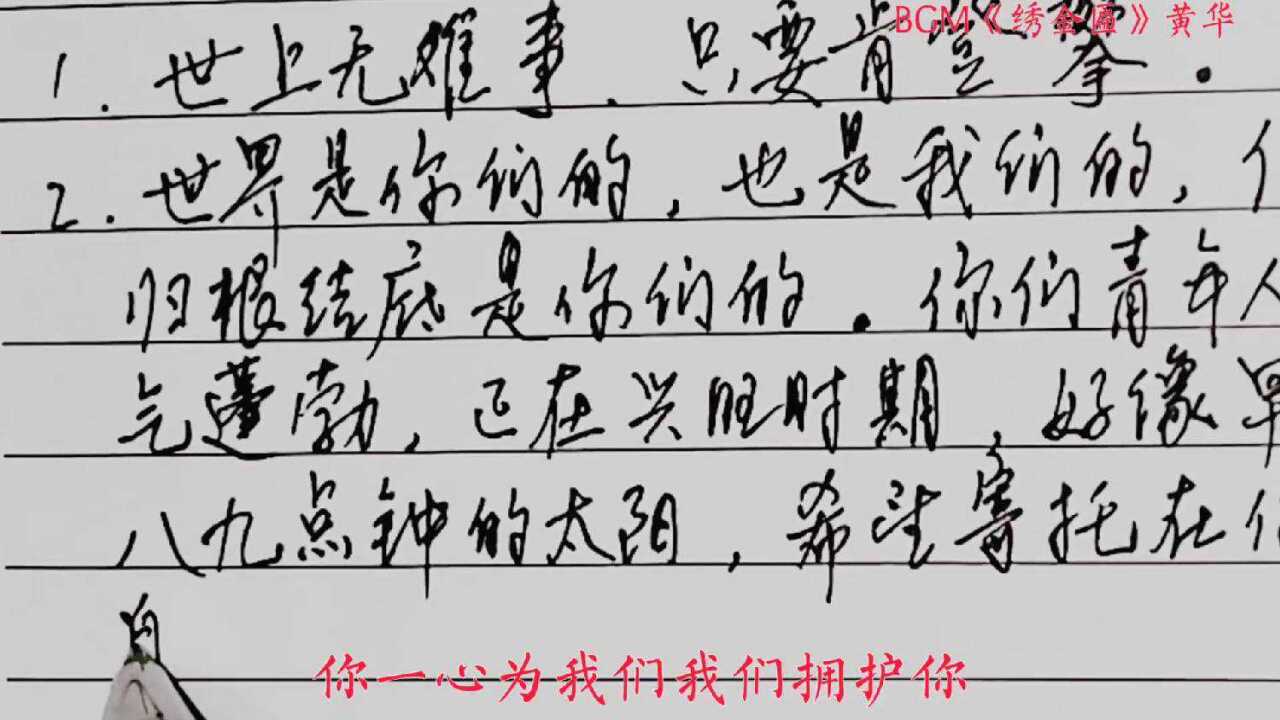 BGM《绣金匾》黄华
1.世上无难事、只要肯登攀。
2.世界是你们的,也是我们的,
归根结底是你们的。你们青年人
气蓬勃,正在兴旺时期,好像早
八九点钟的太阳,希望寄托在
你一心为我们我们拥护你